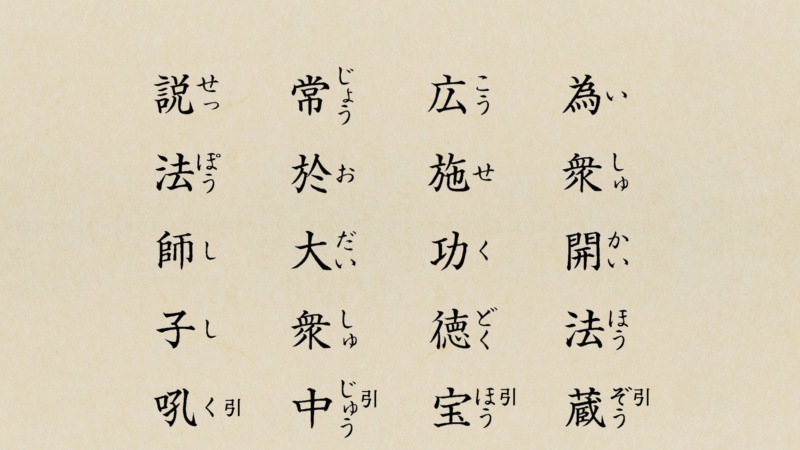 為衆開法蔵
いしゅかいほうぞう引
広施功徳宝
こうせくどくほう引
常於大衆中
じょうおだいしゅじゅう引
説法師子吼
せっぽうししく引